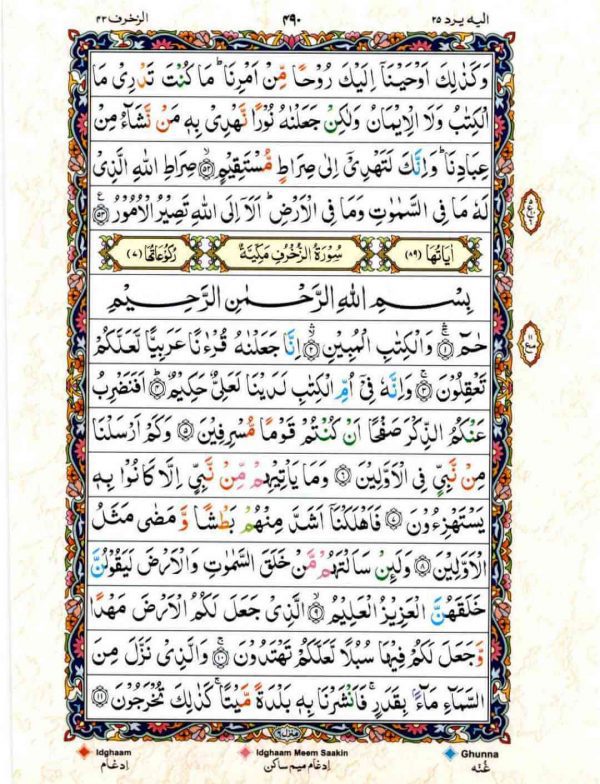 الزخرف ۴۳ ۴۹۰ اليه يرد ۲۵
وَكَذٰلِكَ اَوْحَيْنَاۤ اِلَيْكَ رُوْحًا مِّنْ اَمْرِنَا ؕ مَا كُنْتَ تَدْرِىْ مَا
الْكِتٰبُ وَلَا الْاِيْمَانُ وَلٰكِنْ جَعَلْنٰهُ نُوْرًا نَّهْدِىْ بِهٖ مَنْ نَّشَآءُ مِنْ
عِبَادِنَا ؕ وَاِنَّكَ لَتَهْدِىْۤ اِلٰى صِرَاطٍ مُّسْتَقِيْمٍ ۙ﴿۵۲﴾ صِرَاطِ اللّٰهِ الَّذِىْ
لَهٗ مَا فِى السَّمٰوٰتِ وَمَا فِى الْاَرْضِ ؕ اَلَاۤ اِلَى اللّٰهِ تَصِيْرُ الْاُمُوْرُ ﴿۵۳﴾
اٰيَاتُهَا (۸۹) سُوْرَةُ الزُّخْرُفِ مَكِّيَّةٌ رُكُوْعَاتُهَا (۷)
بِسْمِ اللّٰهِ الرَّحْمٰنِ الرَّحِيْمِ
حٰمٓ ۚ﴿۱﴾ وَالْكِتٰبِ الْمُبِيْنِ ۙ﴿۲﴾ اِنَّا جَعَلْنٰهُ قُرْءٰنًا عَرَبِيًّا لَّعَلَّكُمْ
تَعْقِلُوْنَ ۚ﴿۳﴾ وَاِنَّهٗ فِىْۤ اُمِّ الْكِتٰبِ لَدَيْنَا لَعَلِىٌّ حَكِيْمٌ ؕ﴿۴﴾ اَفَنَضْرِبُ
عَنْكُمُ الذِّكْرَ صَفْحًا اَنْ كُنْتُمْ قَوْمًا مُّسْرِفِيْنَ ﴿۵﴾ وَكَمْ اَرْسَلْنَا
مِنْ نَّبِىٍّ فِى الْاَوَّلِيْنَ ﴿۶﴾ وَمَا يَاْتِيْهِمْ مِّنْ نَّبِىٍّ اِلَّا كَانُوْا بِهٖ
يَسْتَهْزِءُوْنَ ﴿۷﴾ فَاَهْلَكْنَاۤ اَشَدَّ مِنْهُمْ بَطْشًا وَّمَضٰى مَثَلُ
الْاَوَّلِيْنَ ﴿۸﴾ وَلَئِنْ سَاَلْتَهُمْ مَّنْ خَلَقَ السَّمٰوٰتِ وَالْاَرْضَ لَيَقُوْلُنَّ
خَلَقَهُنَّ الْعَزِيْزُ الْعَلِيْمُ ۙ﴿۹﴾ الَّذِىْ جَعَلَ لَكُمُ الْاَرْضَ مَهْدًا
وَّجَعَلَ لَكُمْ فِيْهَا سُبُلًا لَّعَلَّكُمْ تَهْتَدُوْنَ ۚ﴿۱۰﴾ وَالَّذِىْ نَزَّلَ مِنَ
السَّمَآءِ مَآءًۢ بِقَدَرٍ ۚ فَاَنْشَرْنَا بِهٖ بَلْدَةً مَّيْتًا ۚ كَذٰلِكَ تُخْرَجُوْنَ ﴿۱۱﴾
Idghaam Idghaam Meem Saakin Ghunna
اِدغام اِدغام میم ساکن غُنّہ